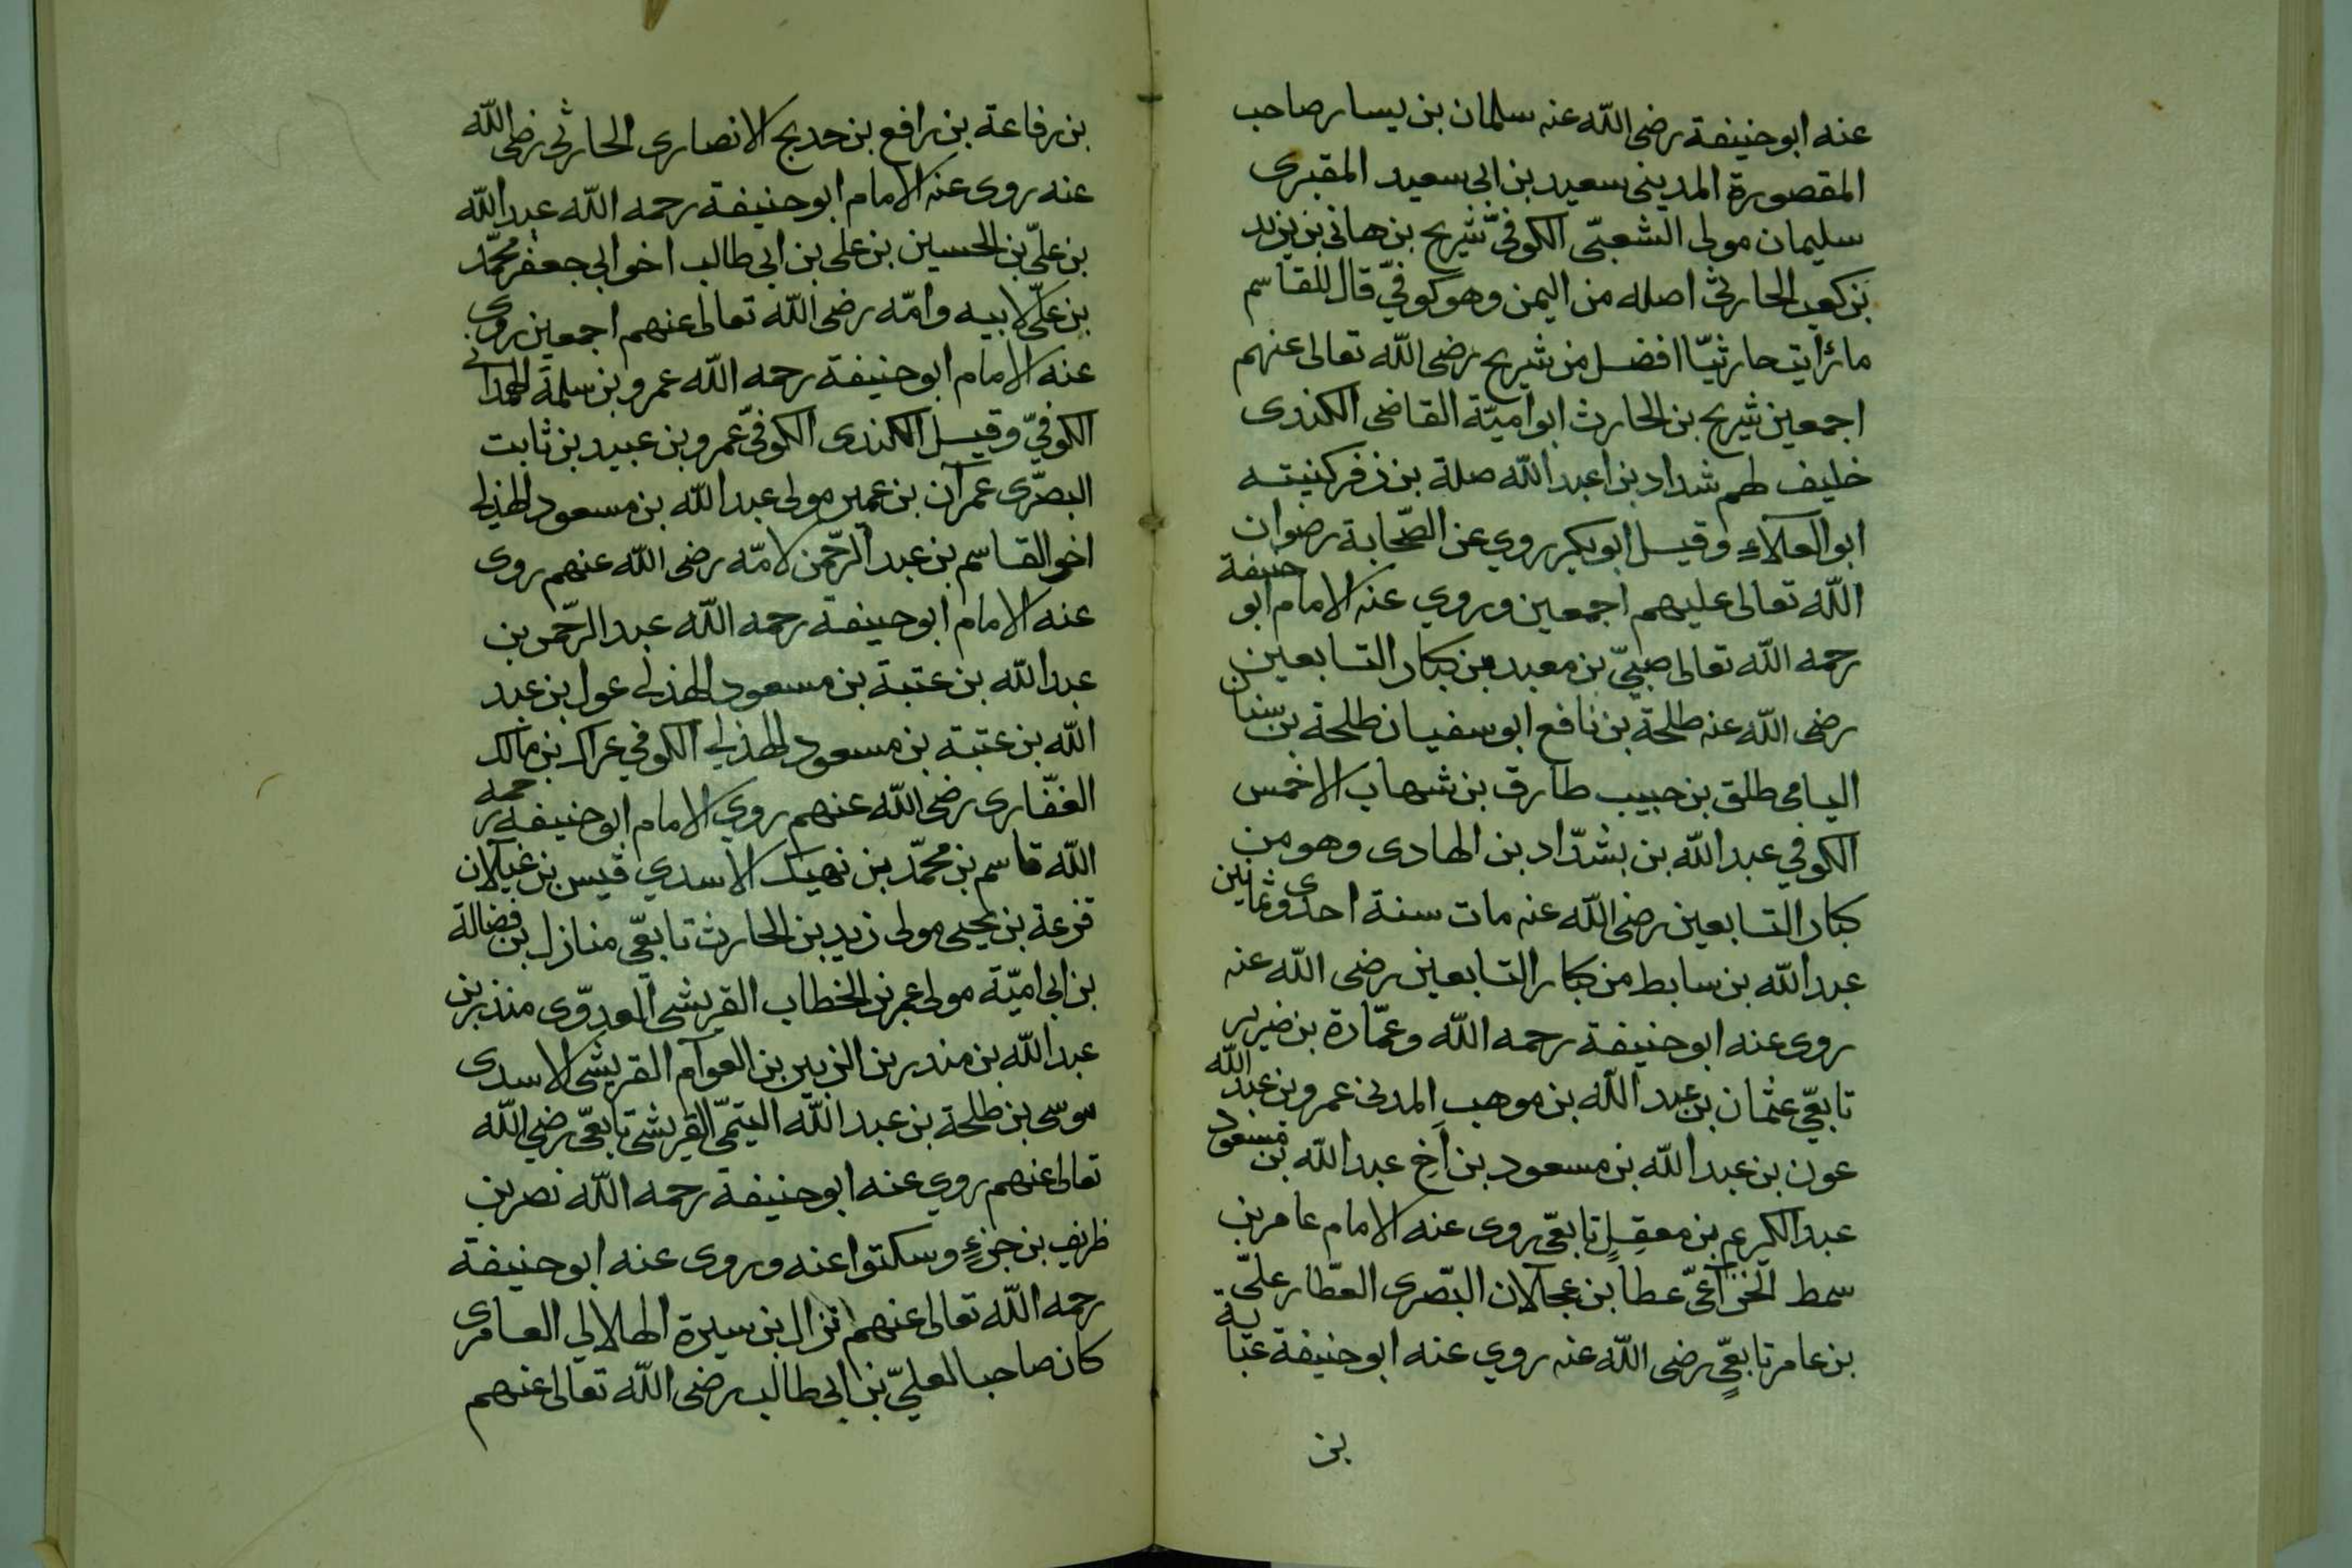 عنه ابو حنيفة رضى الله عنه سلمان بن يسار صاحب
المقصورة المدينى سعيد بن ابى سعيد المقبرى
سليمان مولى الشعبّى الكوفىّ شريح بن هانى بن يزيد
بن كعب الحارثى اصله من اليمن وهو كوفىّ قال للقاسم
ما رأيت حارثيّا افضل من شريح رضى الله تعالى عنهم
اجمعين شريح بن الحارث ابو اميّة القاضى الكندى
خليف لهم شداد بن اعبد الله صلة بن زفر كنيته
ابو العلاء وقيل ابو بكر روي عن الصّحابة رضوان
الله تعالى عليهم اجمعين وروي عنه الامام ابو حنيفة
رحمه الله تعالى صبىّ بن معبد من كبار التابعين
رضى الله عنه طلحة بن نافع ابو سفيان طلحة بن سنان
اليامى طلق بن حبيب طارق بن شهاب الاخمس
الكوفي عبد الله بن بشدّاد بن الهادى وهو من
كبار التابعين رضى الله عنه مات سنة احدى وثمانين
عبد الله بن سابط من كبار التابعين رضى الله عنه
روى عنه ابو حنيفة رحمه الله وعمّارة بن ضرير
تابعّي عثمان بن عبد الله بن موهب المدنى عمرو بن عبد الله
عون بن عبد الله بن مسعود بن اخ عبد الله بن مسعود
عبد الكريم بن معقل تابعّى روى عنه الامام عامر بن
سمط الخزاعىّ عطا بن عجلان البّصرى العطّار علىّ
بن عامر تابعّي رضى الله عنه روي عنه ابو حنيفة عباية
بن
بن رفاعة بن رافع بن خديج الانصارى الحارثى رضى الله
عنه روى عنه الامام ابو حنيفة رحمه الله عبد الله
بن علىّ بن الحسين بن على بن ابى طالب اخو ابى جعفر محمّد
بن علىّ لابيه وامّه رضى الله تعالى عنهم اجمعين روى
عنه الامام ابو حنيفة رحمه الله عمرو بن سلمة الهمدانى
الكوفيّ وقيل الكندى الكوفىّ عمرو بن عبيد بن ثابت
البصرّى عمران بن عمير مولى عبد الله بن مسعود الهذلى
اخو القاسم بن عبد الرّحمن لامّه رضى الله عنهم روى
عنه الامام ابو حنيفة رحمه الله عبد الرّحمن بن
عبد الله بن عتبة بن مسعود الهذلى عول بن عبد
الله بن عتبة بن مسعود الهذلي الكوفي عراك بن مالك
الغفّارى رضى الله عنهم روي الامام ابو حنيفة رحمه
الله قاسم بن محمّد بن نهيك الاسدي قيس بن غيلان
قزعة بن يحيى مولى زيد بن الحارث تابعّي منازل بن فضالة
بن ابى اميّة مولى عمر بن الخطاب القريشى العدوّى منذر بن
عبد الله بن منذر بن الزبير بن العوام القريشى الاسدى
موسى بن طلحة بن عبد الله التيمّى القريشى تابعّى رضى الله
تعالى عنهم روي عنه ابو حنيفة رحمه الله نصر بن
ظريف بن جزء وسكتوا عنه وروى عنه ابو حنيفة
رحمه الله تعالى عنهم نزال بن سبرة الهلالي العامرى
كان صاحبا لعلىّ بن ابى طالب رضى الله تعالى عنهم